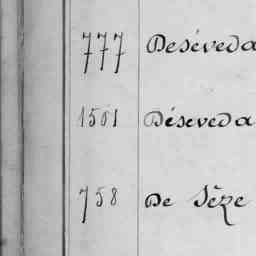 777 Deséveda
1501 Déseveda
758 De Sèze